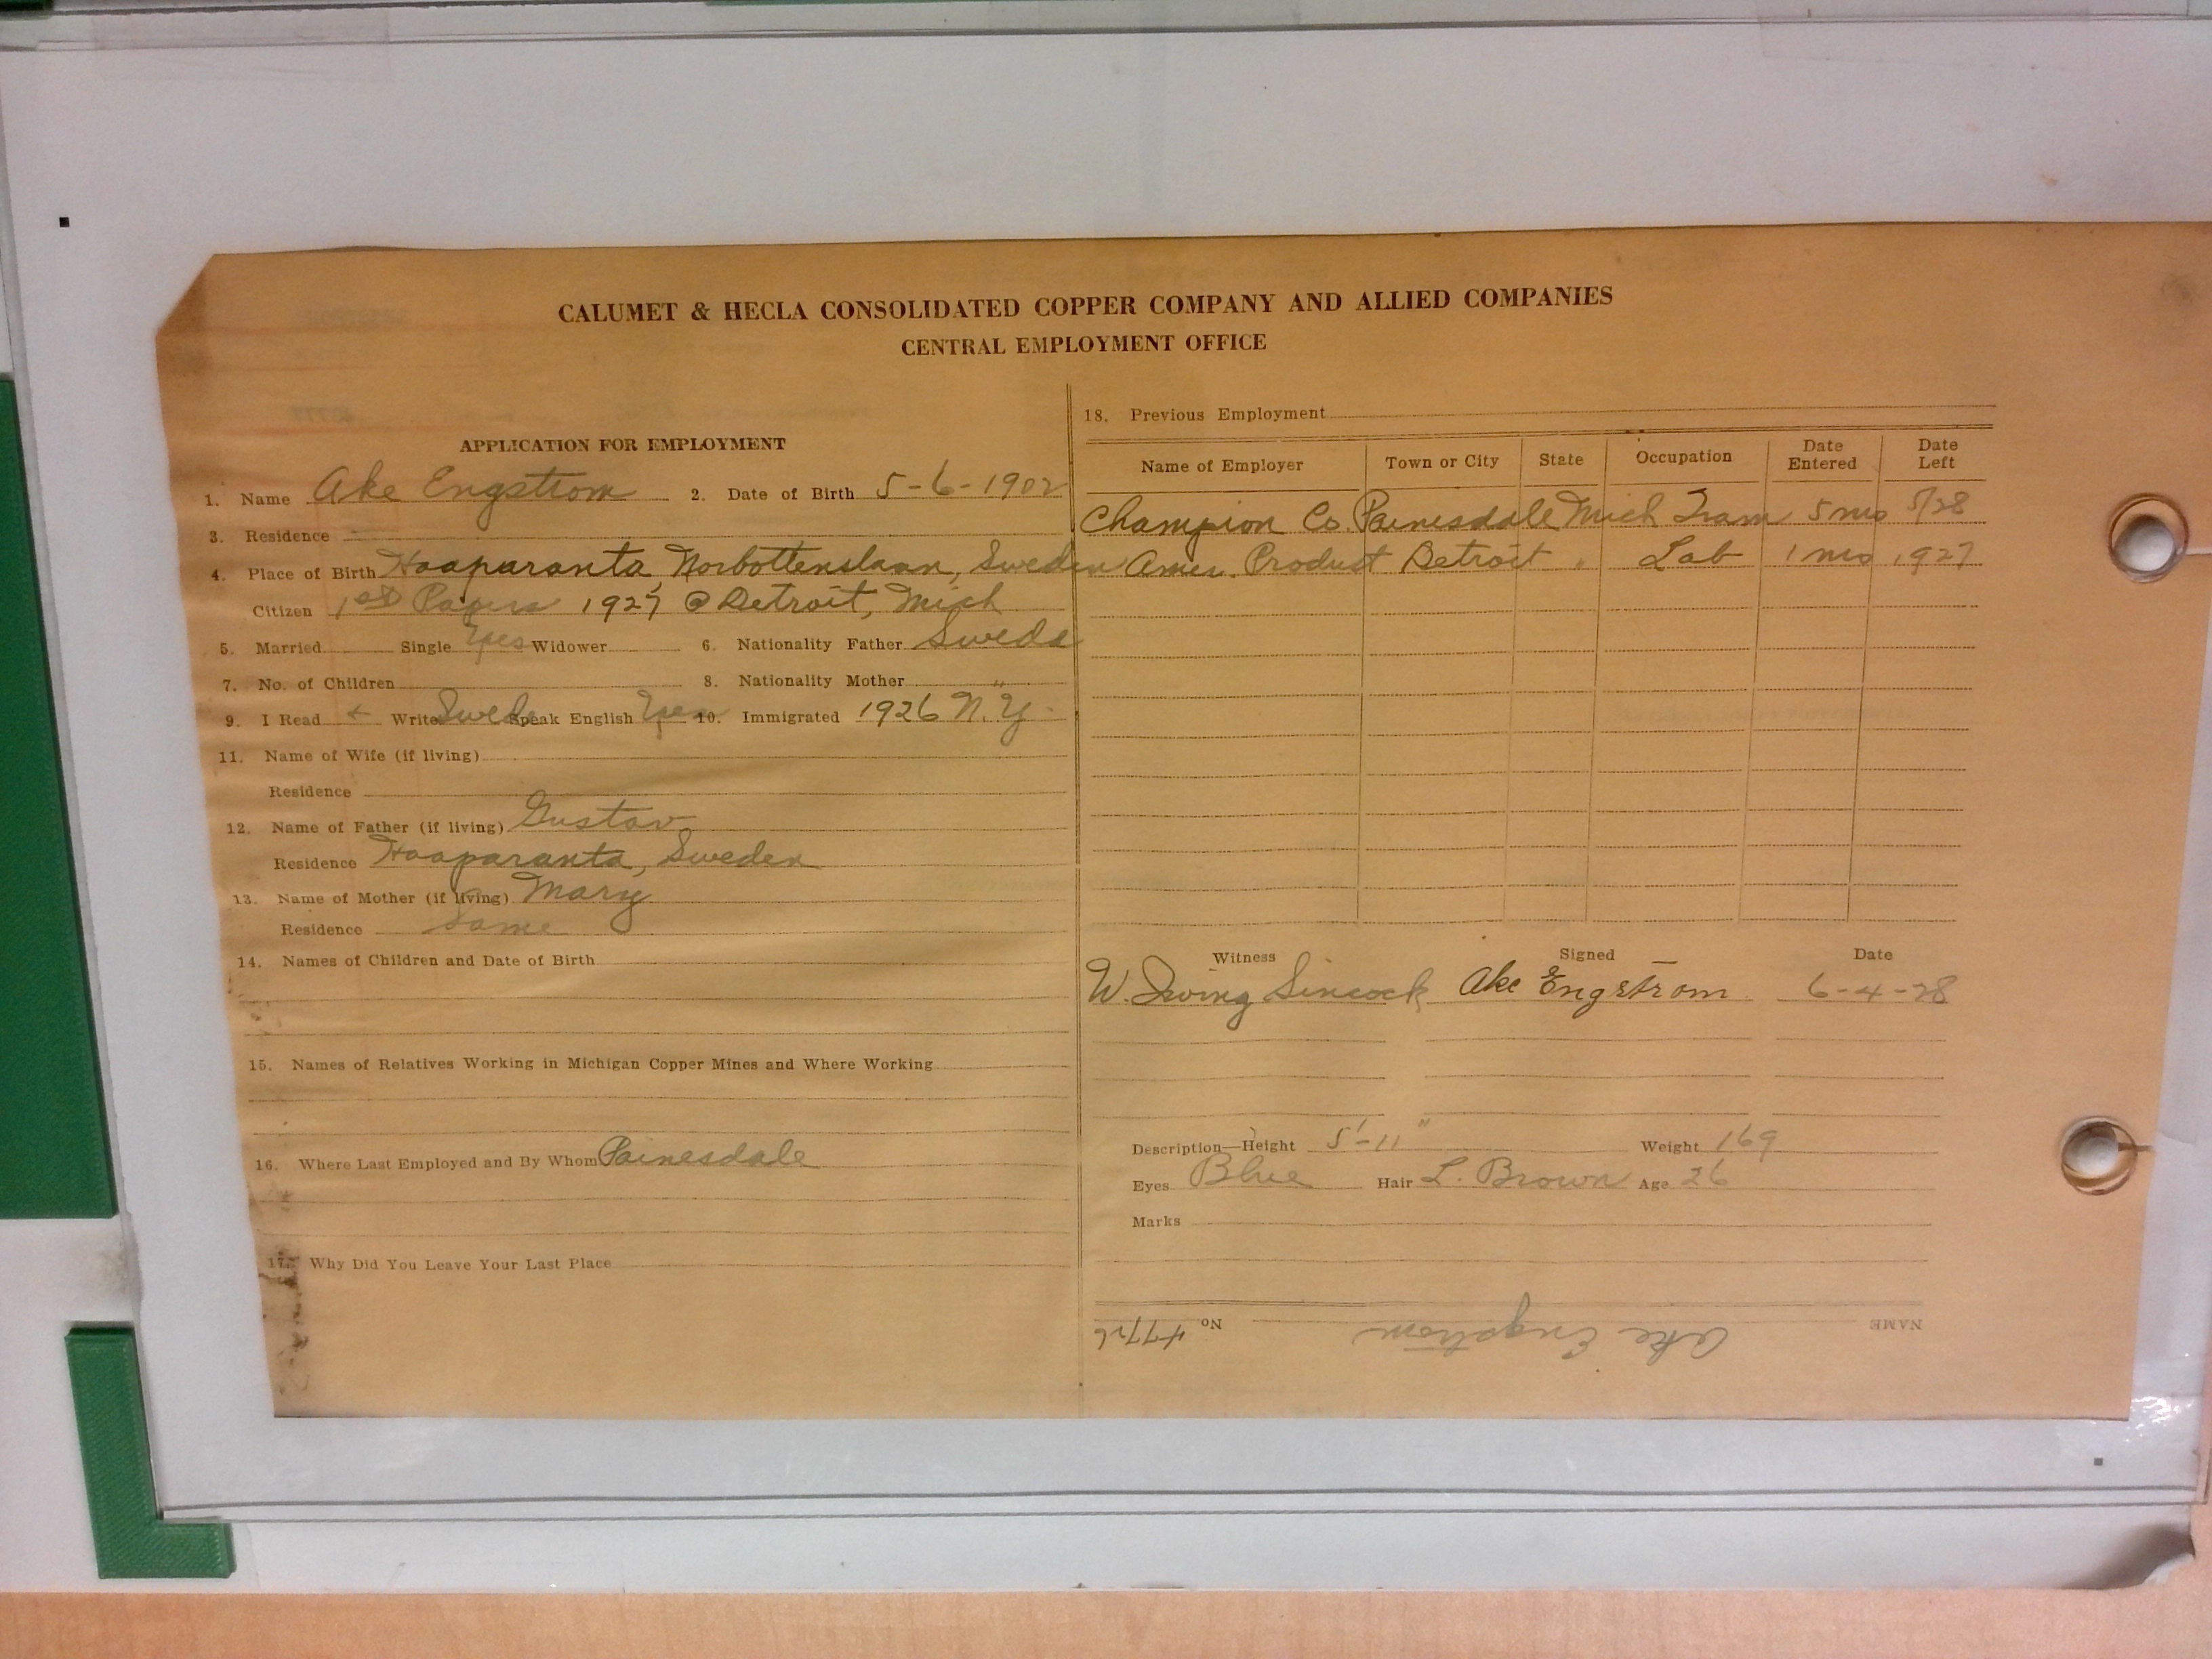 CALUMET & HECLA CONSOLIDATED COPPER COMPANY AND ALLIED COMPANIES
CENTRAL EMPLOYMENT OFFICE
APPLICATION FOR EMPLOYMENT
1. Name Ake Engstrom 2. Date of Birth 5-6-1902
3. Residence
4. Place of Birth Haaparanta, Norbottenslaan, Sweden
Citizen 1st Papers 1927 @ Detroit, Mich
5. Married Single Yes Widower 6. Nationality Father Swede
7. No. of Children 8. Nationality Mother "
9. I Read + Write Swede Speak English Yes 10. Immigrated 1926 N.Y.
11. Name of Wife (if living)
Residence
12. Name of Father (if living) Gustav
Residence Haaparanta, Sweden
13. Name of Mother (if living) Mary
Residence Same
14. Names of Children and Date of Birth
15. Names of Relatives Working in Michigan Copper Mines and Where Working
16. Where Last Employed and By Whom Painesdale
17. Why Did You Leave Your Last Place
18. Previous Employment
Name of Employer Town or City State Occupation Date Entered Date Left
Champion Co. Painesdale Mich Tram 5 mo 5/28
Amer. Product Detroit " Lab 1 mo 1927
Witness Signed Date
W. Irving Sincock Ake Engstrom 6-4-28
Description—Height 5'-11" Weight 169
Eyes Blue Hair L. Brown Age 26
Marks
NAME Ake Engstrom No. 47726